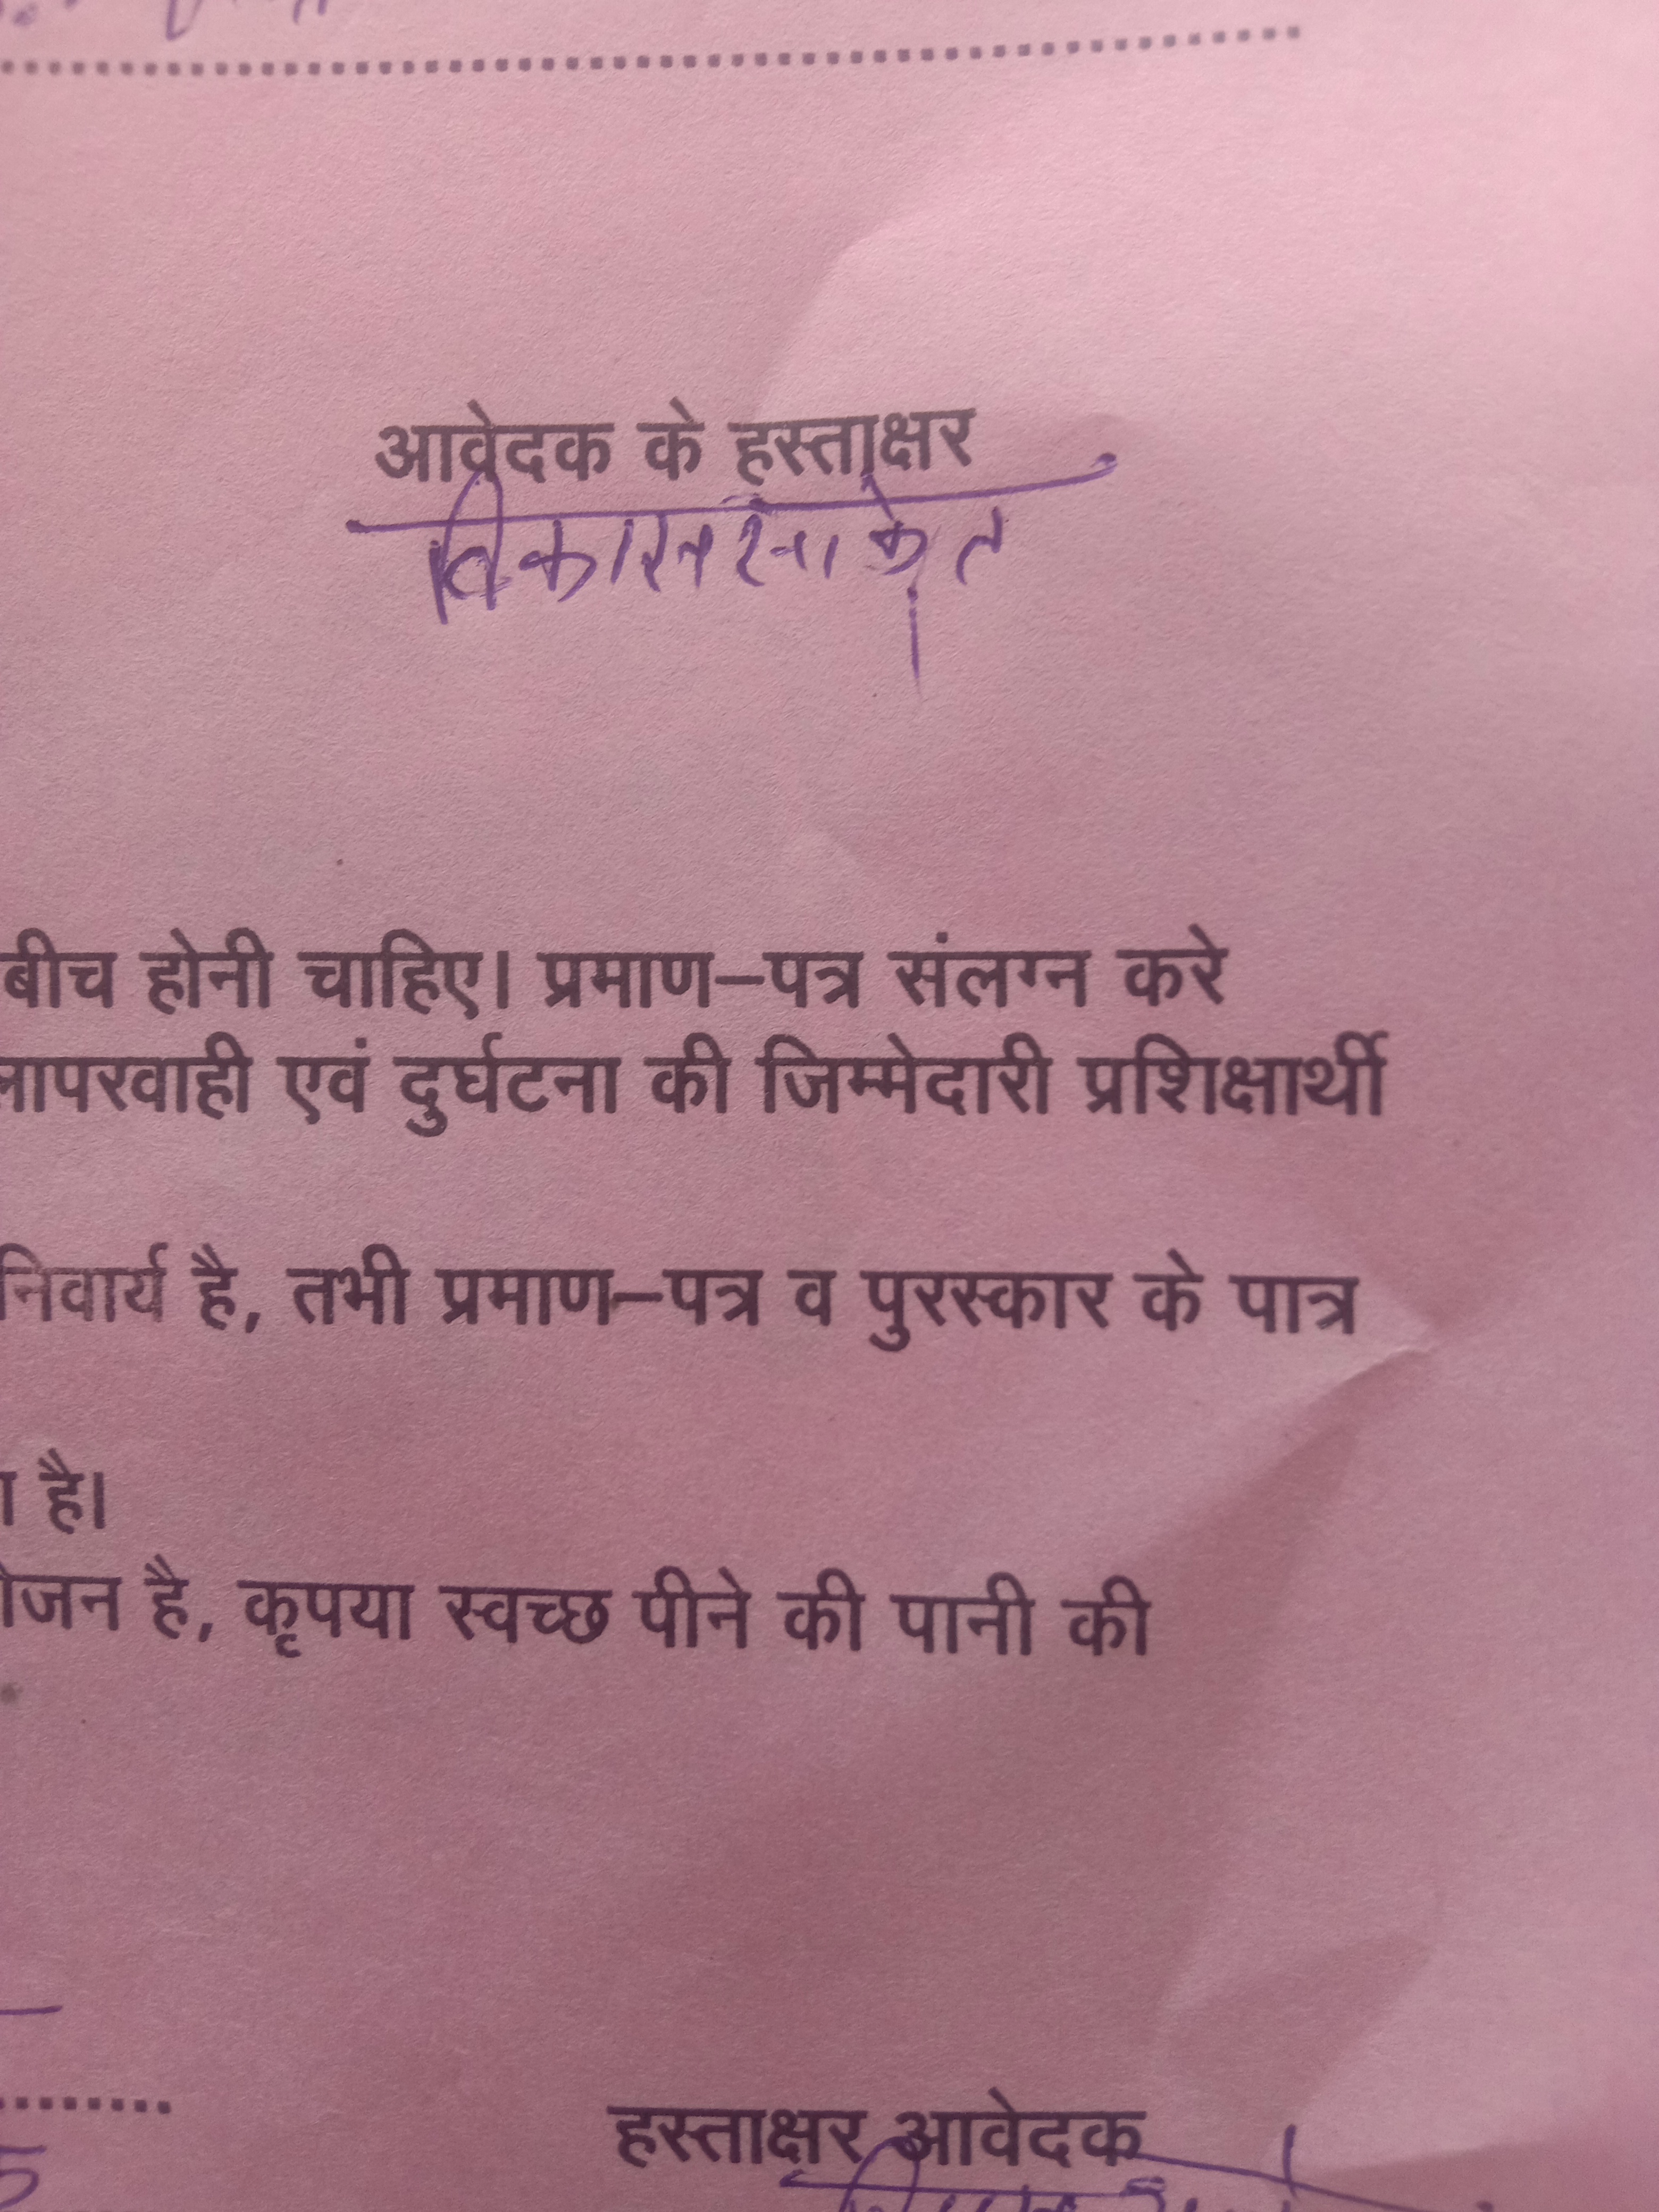 आवेदक के हस्ताक्षर
विकास साकेत
बीच होनी चाहिए। प्रमाण–पत्र संलग्न करे
लापरवाही एवं दुर्घटना की जिम्मेदारी प्रशिक्षार्थी
निवार्य है, तभी प्रमाण–पत्र व पुरस्कार के पात्र
है।
है, कृपया स्वच्छ पीने की पानी की
हस्ताक्षर आवेदक